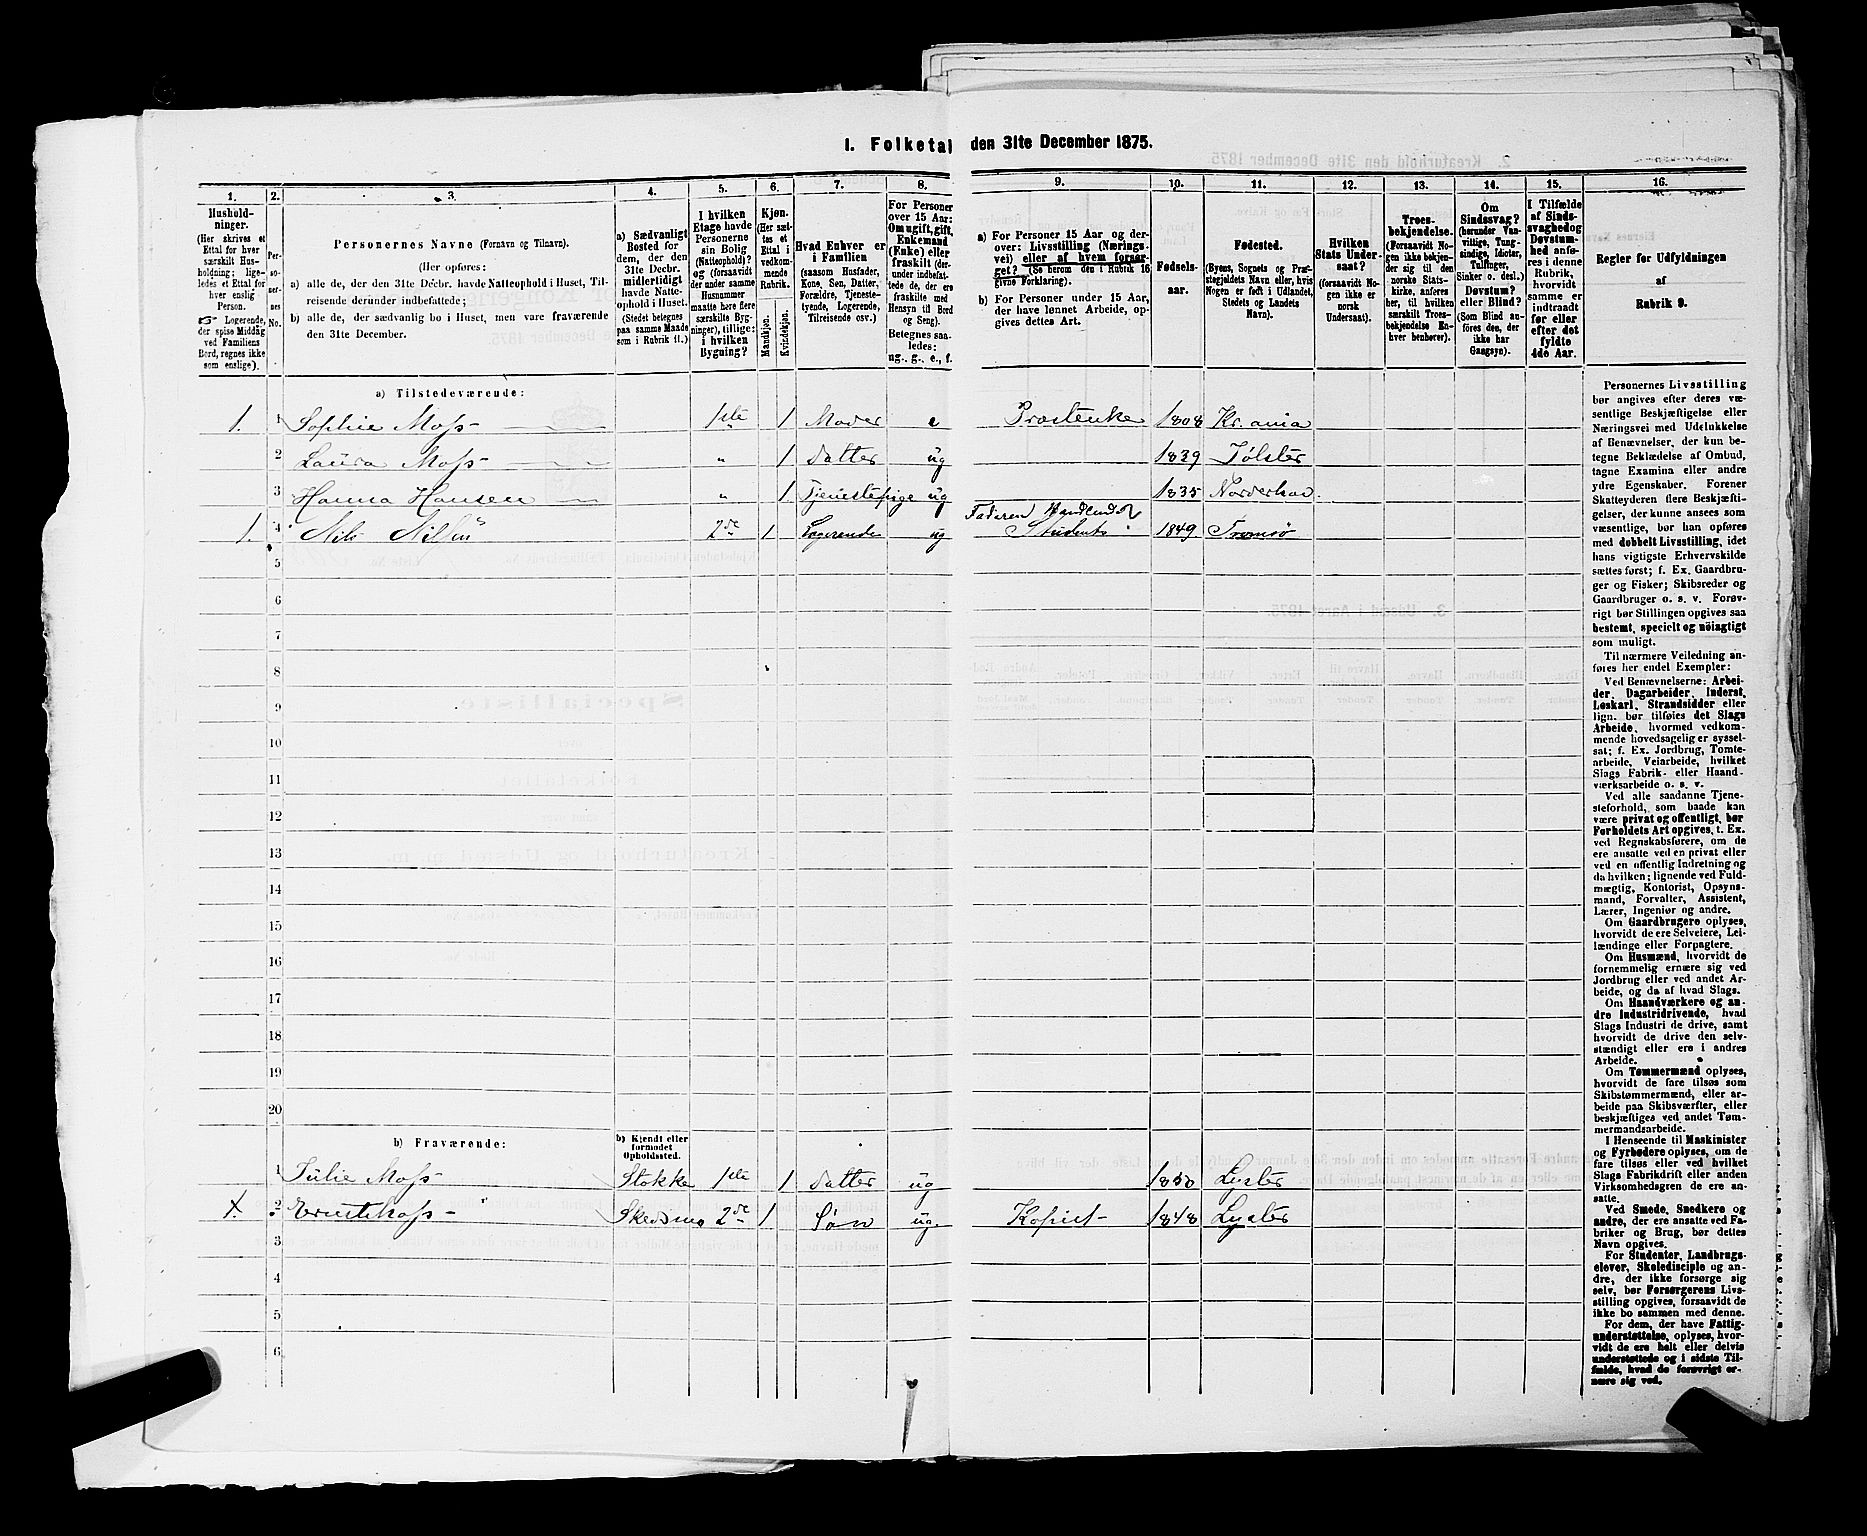 1. Folketal den 31te December 1875.
1. 2. 3. 4. 5. 6. 7. 8. 9. 10. 11. 12. 13. 14. 15. 16.
Hushold-
ninger.
(Her skrives et
Ettal for hver
særskilt Hus-
holdning; lige-
ledes et Ettal for
hver enslig
Person.
Logerende,
der spise Middag
ved Familiens
Bord, regnes ikke
som enslige).
Per-
so-
ner-
nes
No.
Personernes Navne (Fornavn og Tilnavn).
(Her opføres:
a) alle de, der den 31te Decbr. havde Natteophold i Huset, Til-
reisende derunder indbefattede;
b) alle de, der sædvanlig bo i Huset, men vare fraværende
den 31te December.
a) Sædvanligt
Bosted for
dem, der den
31te Decbr.
midlertidigt
havde Natte-
ophold i Huset.
(Stedet betegnes
paa samme Maade
som i Rubrik 11.)
I hvilken
Etage havde
Personerne
sin Bolig
(Natteophold)?
og (forsaavidt
der under samme
Husnummer
maatte høre flere
særskilte Byg-
ninger), tillige:
i hvilken
Bygning?
Kjøn.
(Her sæt-
tes et
Ettal i
vedkom-
mende
Rubrik.
Mandkjøn.
Kvindekjøn.
Hvad Enhver er
i Familien
(saasom Husfader,
Kone, Søn, Datter,
Forældre, Tjeneste-
tyende, Logerende,
Tilreisende osv.)
For Personer
over 15 Aar:
Om ugift, gift,
Enkemand
(Enke) eller
fraskilt (der-
under indbefat-
tede de, der ere
fraskilte med
Hensyn til Bord
og Seng).
Betegnes saa-
ledes:
ug., g., e., f.
a) For Personer 15 Aar og der-
over: Livsstilling (Nærings-
vei) eller af hvem forsør-
get? (Se herom den i Rubrik 16
givne Forklaring).
b) For Personer under 15 Aar,
der have lønnet Arbeide, op-
gives dettes Art.
Fødsels-
aar.
Fødested.
(Byens, Sognets og Præ-
stegjeldets Navn eller, hvis
Nogen er født i Udlandet,
Stedets og Landets
Navn).
Hvilken
Stats Under-
saat?
(forsaavidt No-
gen ikke er
norsk
Undersaat).
Troes-
bekjendelse.
(Forsaavidt No-
gen ikke bekjen-
der sig til den
norske Stats-
kirke, anføres
her, til hvilken
særskilt Troes-
bekjendelse En-
hver henhører).
Om
Sindssvag?
(herunder Vaa-
vittige, Tung-
sindige, Idioter,
Tullinger,
Sinker o. desl.)
Døvstum?
eller Blind?
(Som Blind an-
føres den, der
ikke har
Gangsyn).
I Tilfælde
af Sinds-
svaghed og
Døvstum-
hed anfø-
res i denne
Rubrik,
hvorvidt
samme er
indtraadt
før eller
efter det
fyldte
4de Aar.
Regler for Udfyldningen
af
Rubrik 9.
a) Tilstedeværende:
1. 1 Sophie Moss 1ste 1 Moder e Prostenke 1808 Kr.ania
2 Laura Moss „ 1 Datter ug 1839 Jølster
3 Hanna Hansen „ 1 Tjenestepige ug 1835 Norderhov.
Faderen Handlende
1. 4 Nils Nilsen 2de 1 Logerende ug Students 1849. Tromsø
5
6
7
8
9
10
11
12
13
14
15
16
17
18
19
20
b) Fraværende:
b) Kjendt eller
formodet
Opholdssted.
1 Julie Moss Stokke 1ste 1 Datter ug 1850 Lyster
2 Ernst Moss Skedsmo 2de 1 Søn ug. Kopist 1848 Lyster
3
4
5
6
Personernes Livsstilling
bør angives efter deres væ-
sentlige Beskjæftigelse eller
Næringsvei med Udelukkelse
af Benævnelser, der kun be-
tegne Beklædelse af Ombud,
tagne Examina eller andre
ydre Egenskaber. Forener
Skatteyderen flere Beskjæfti-
gelser, der kunne ansees som
væsentlige, bør han opføres
med dobbelt Livsstilling, idet
hans vigtigste Erhvervskilde
sættes først; f. Ex. Gaardbru-
ger og Fisker; Skibsreder og
Gaardbruger o. s. v. Forøv-
rigt bør Stillingen opgives saa
bestemt, specielt og nøiagtigt
som muligt.
Til nærmere Veiledning an-
føres her endel Exempler:
Ved Benævnelserne: Arbei-
der, Dagarbeider, Inderst,
Løskarl, Strandsidder eller
lign. bør tilføies det Slags
Arbeide, hvormed vedkom-
mende hovedsagelig er syssel-
sat; f. Ex. Jordbrug, Tomte-
arbeide, Veiarbeide, hvilket
Slags Fabrik- eller Haand-
værksarbeide o. s. v.
Ved alle saadanne Tjene-
steforhold, som baade kan
være privat og offentligt, bør
Forholdets Art opgives, t. Ex.
ved Regnskabsførere, om de
ere ansatte ved en privat eller
ved en offentlig Indretning og
da hvilken; lignende ved Fuld-
mægtig, Kontorist, Opsyns-
mand, Forvalter, Assistent,
Lærer, Ingeniør og andre.
Om Gaardbrugere oplyses,
hvorvidt de ere Selveiere, Lei-
lændinge eller Forpagtere.
Om Husmænd, hvorvidt de
fornemmelig ernære sig ved
Jordbrug eller ved andet Ar-
beide, og da af hvad Slags.
Om Haandværkere og an-
dre Industridrivende, hvad
Slags Industri de drive, samt
hvorvidt de drive den selv-
stændigt eller ere i andres
Arbeide.
Om Tømmermænd oplyses,
hvorvidt de fare tilsøs som
Skibstømmermænd, eller ar-
beide paa Skibsværfter, eller
beskjæftiges ved andet Tøm-
mermandsarbeide.
I Henseende til Maskinister
og Fyrbødere oplyses, om de
fare tilsøs eller ved hvilket
Slags Fabrikdrift eller anden
Virksomhedsgren de ere an-
satte.
Ved Smede, Snedkere og
andre, der ere ansatte ved Fa-
briker og Brug, bør dettes
Navn opgives.
For Studenter, Landbrugs-
elever, Skoledisciple og an-
dre, der ikke forsørge sig
selv, bør Forsørgerens Livs-
stilling opgives, forsaavidt de
ikke bo sammen med denne.
For dem, der have Fattig-
understøttelse, oplyses, hvor-
vidt de ere helt eller delvis
understøttede og i sidste Til-
fælde, hvad de forøvrigt er-
nære sig ved.